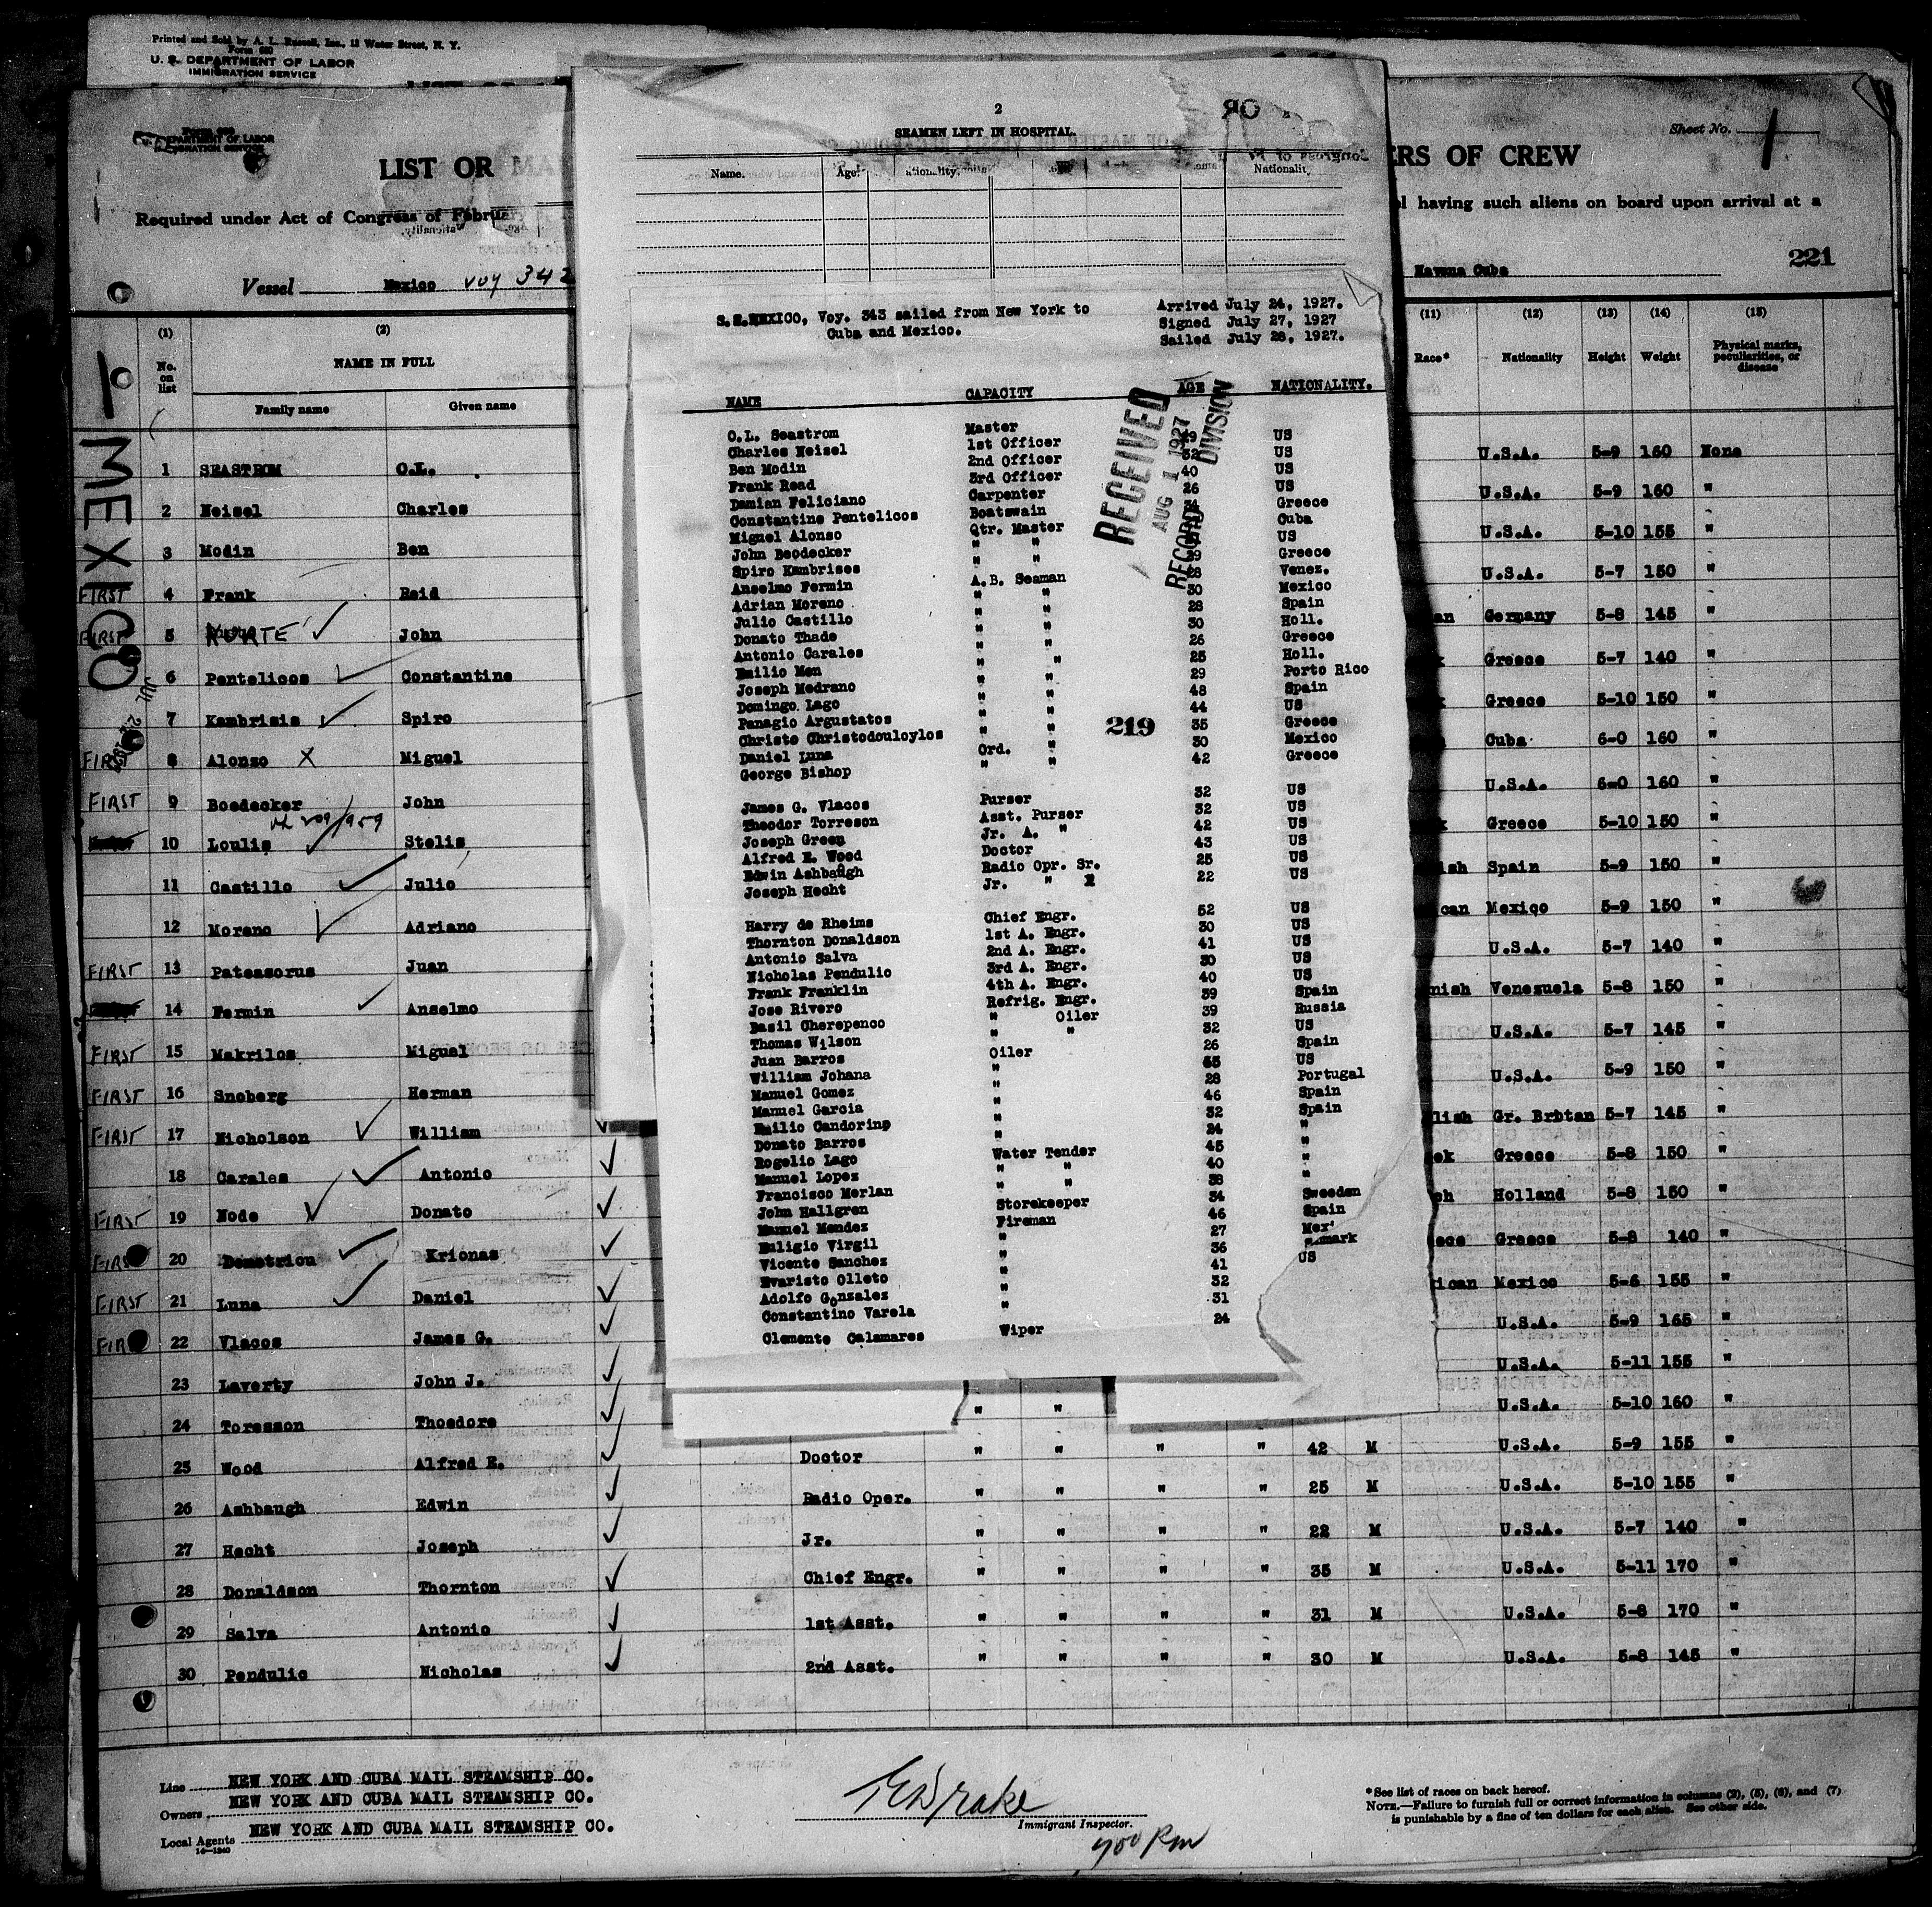 Printed and Sold by A. L. Russell, Inc., 12 Water Street, N. Y.
Form 680
U. S. DEPARTMENT OF LABOR
IMMIGRATION SERVICE
LIST OR
Required under Act of Congress of Februa
Vessel Mexico voy 342
ERS OF CREW
Sheet No. 1
having such aliens on board upon arrival at a
Havana Cuba
221
(1) (2)
No. on list
NAME IN FULL
Family name Given name
(11) (12) (13) (14) (15)
Race* Nationality Height Weight Physical marks, peculiarities, or disease
MEXICO
1 SEASTROM O.L. U.S.A. 5-9 160 None
2 Neisel Charles U.S.A. 5-9 160 "
3 Modin Ben U.S.A. 5-10 155 "
FIRST 4 Frank Reid U.S.A. 5-7 150 "
FIRST 5 KURTE John Germany 5-8 145 "
6 Pentelicos Constantine Greece 5-7 140 "
7 Kambrisis Spiro Greece 5-10 150 "
FIRST 8 Alonso X Miguel Cuba 6-0 160 "
FIRST 9 Boedecker John U.S.A. 6-0 160 "
10 Loulis Stelis Greece 5-10 150 "
11 Castillo Julio ish Spain 5-9 150 "
12 Moreno Adriano can Mexico 5-9 150 "
FIRST 13 Patessorus Juan U.S.A. 5-7 140 "
14 Fermin Anselmo nish Venezuela 5-8 150 "
FIRST 15 Makrilos Miguel U.S.A. 5-7 145 "
FIRST 16 Snoberg Herman U.S.A. 5-9 150 "
FIRST 17 Nicholson William lish Gr. Brbtan 5-7 145 "
18 Carales Antonio ek Greece 5-8 150 "
FIRST 19 Node Donato ch Holland 5-8 150 "
FIRST 20 Demetriou Krionas eece Greece 5-8 140 "
FIRST 21 Luna Daniel ican Mexico 5-6 155 "
FIRST 22 Vlacos James G. U.S.A. 5-9 165 "
23 Laverty John J. U.S.A. 5-11 155 "
24 Toresson Thoedore " " U.S.A. 5-10 160 "
25 Wood Alfred E. Doctor " " " " 42 M U.S.A. 5-9 155 "
26 Ashbaugh Edwin Radio Oper. " " " " 25 M U.S.A. 5-10 155 "
27 Hecht Joseph Jr. " " " " 22 M U.S.A. 5-7 140 "
28 Donaldson Thornton Chief Engr. " " " " 35 M U.S.A. 5-11 170 "
29 Salva Antonio 1st Asst. " " " " 31 M U.S.A. 5-8 170 "
30 Pendulic Nicholas 2nd Asst. " " " " 30 M U.S.A. 5-8 145 "
Line NEW YORK AND CUBA MAIL STEAMSHIP CO.
Owners NEW YORK AND CUBA MAIL STEAMSHIP CO.
Local Agents NEW YORK AND CUBA MAIL STEAMSHIP CO.
14—1240
Drake
Immigrant Inspector.
700 Pm
*See list of races on back hereof.
NOTE.—Failure to furnish full or correct information in columns (2), (5), (6), and (7)
is punishable by a fine of ten dollars for each alien. See other side.
2
SEAMEN LEFT IN HOSPITAL.
Name. Age. Nationality. Nationality
S.S.MEXICO, Voy. 343 sailed from New York to
Cuba and Mexico.
Arrived July 24, 1927.
Signed July 27, 1927
Sailed July 28, 1927.
NAME CAPACITY AGE NATIONALITY.
RECEIVED
AUG 1 1927
RECORD DIVISION
219
O.L. Seastrom Master 49 US
Charles Neisel 1st Officer 52 US
Ben Modin 2nd Officer 40 US
Frank Read 3rd Officer 26 US
Damian Feliciano Carpenter Greece
Constantine Pentelicos Boatswain Cuba
Miguel Alonso Qtr. Master US
John Beodecker " " Greece
Spiro Kambrises " " 28 Venez.
Anselmo Fermin A.B. Seaman 30 Mexico
Adrian Moreno " " 28 Spain
Julio Castillo " " 30 Holl.
Donato Thade " " 26 Greece
Antonio Carales " " 25 Holl.
Emilio Men " " 29 Porto Rico
Joseph Medrano " " 48 Spain
Domingo Lago " " 44 US
Panagio Argustatos " " 35 Greece
Christo Christodouloylos " " 30 Mexico
Daniel Luna Ord. " 42 Greece
George Bishop " "
James G. Vlacos Purser 32 US
Theodor Torreson Asst. Purser 32 US
Joseph Green Jr. A. " 42 US
Alfred E. Wood Doctor 43 US
Edwin Ashbaugh Radio Opr. Sr. 25 US
Joseph Hecht Jr. " 22 US
Harry de Rheims Chief Engr. 52 US
Thornton Donaldson 1st A. Engr. 30 US
Antonio Salva 2nd A. Engr. 41 US
Nicholas Pendulic 3rd A. Engr. 30 US
Frank Franklin 4th A. Engr. 40 US
Jose Rivero Refrig. Engr. 39 Spain
Basil Cherepenco " Oiler 39 Russia
Thomas Wilson " " 32 US
Juan Barros Oiler 26 Spain
William Johana " 55 US
Manuel Gomez " 28 Portugal
Manuel Garcia " 46 Spain
Emilio Candorino " 32 Spain
Donato Barros " 24 "
Rogelio Lago Water Tender 45 "
Manuel Lopez " " 40 "
Francisco Merlan " " 38 "
John Hallgren Storekeeper 34 Sweden
Manuel Mendez Fireman 46 Spain
Euligio Virgil " 27 Mex'
Vicente Sanchez " 36 mark
Evaristo Olleto " 41 US
Adolfo Gonzales " 32
Constantino Varela " 31
Clemente Calamares Wiper 24